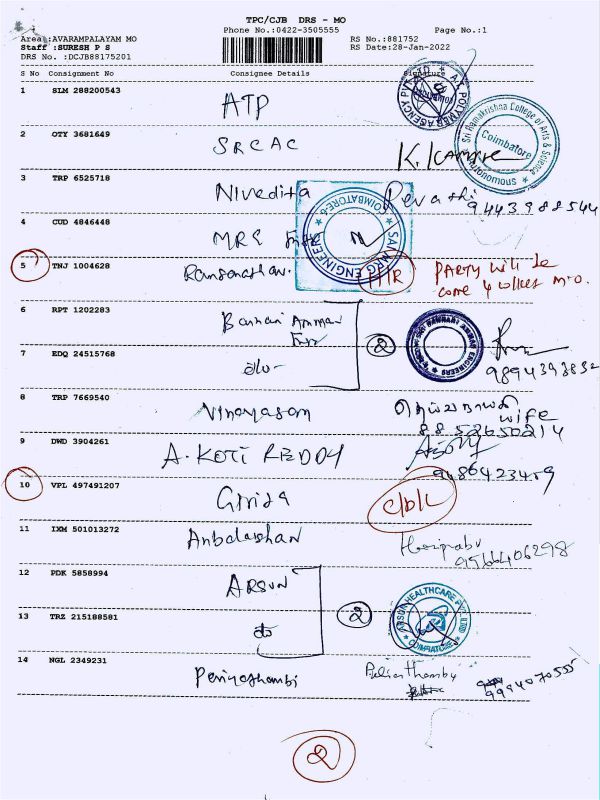 TPC/CJB DRS - MO
Phone No.:0422-3505555 Page No.:1
Area :AVARAMPALAYAM MO RS No.:881752
Staff :SURESH P S RS Date:28-Jan-2022
DRS No. :DCJB88175201
S No Consignment No Consignee Details Signature
1 SLM 288200543 ATP
2 OTY 3681649 SRCAC
Sri Ramakrishna College of Arts & Science
Coimbatore
3 TRP 6525718 Nivedita Revathi
9443988544
4 CUD 4846448 MRG
COIMBATORE-6
5 TNJ 1004628 PARTY will be
come & collect M.O.
6 RPT 1202283 Bannari Amman 2
7 EDQ 24515768 -do-
9894393832
8 TRP 7669540 Vinayagam wife
8852650214
9 DWD 3904261 A. KOTI REDDY
10 VPL 497491207 Girija
11 IXM 501013272 Hariprabu
9566406298
12 PDK 5858994 ARSUN
ARSUN HEALTHCARE PVT LTD
COIMBATORE
2
13 TRZ 215188581
14 NGL 2349231 Periyathambi
9994070555
2